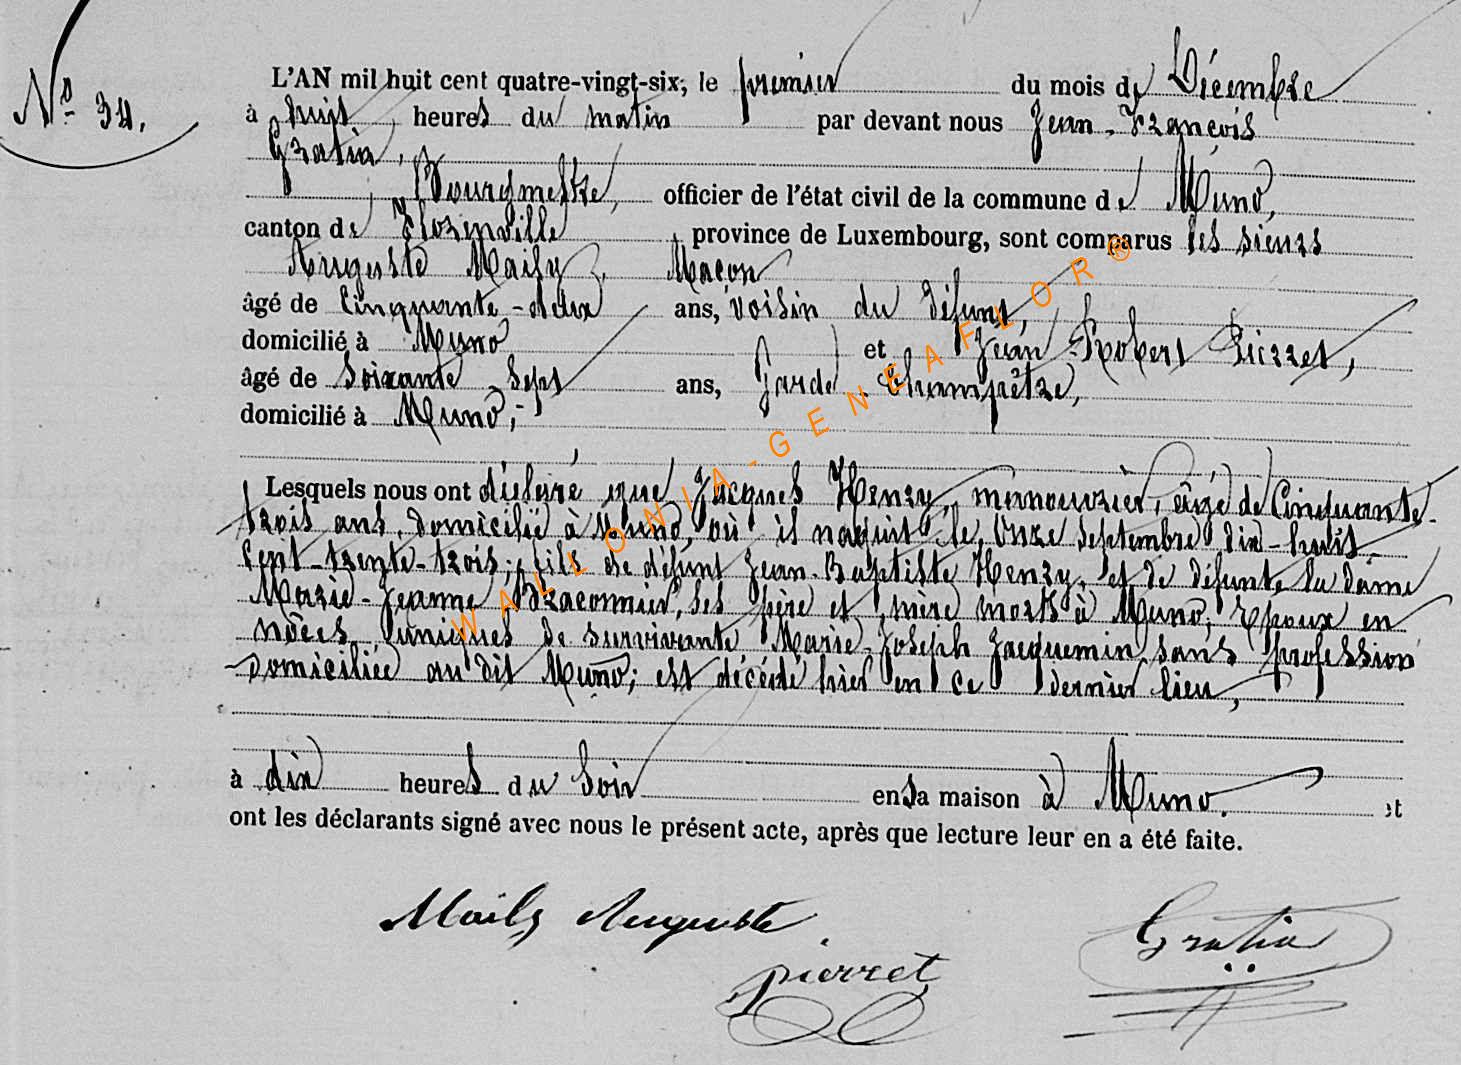 N° 34.
L'AN mil huit cent quatre-vingt-six, le premier du mois de Décembre
à huit heures du matin par devant nous Jean-François
Gratia,
Bourgmestre, officier de l'état civil de la commune de Muno,
canton de Florenville, province de Luxembourg, sont comparus les sieurs
Auguste Maily, Maçon
âgé de Cinquante-deux ans, voisin du défunt,
domicilié à Muno et Jean-Robert Pierret,
âgé de Soixante-Sept ans, Garde Champêtre,
domicilié à Muno,-
Lesquels nous ont déclaré que Jacques Henry, manouvrier, âgé de Cinquante-
trois ans, domicilié à Muno, où il naquit le Onze Septembre dix-huit-
Cent-trente-trois; fils de défunt Jean-Baptiste Henry, et de défunte la Dame
Marie-Jeanne Braconnier, ses père et mère morts à Muno; Epoux en
nôces uniques de survivante Marie-Joseph Jacquemin, sans profession
domiciliée au dit Muno; est décédé hier en ce dernier lieu,
à dix heures du Soir en sa maison à Muno. et
ont les déclarants signé avec nous le présent acte, après que lecture leur en a été faite.
Maily Auguste
pierret
Gratia
WALLONIA-GENEAFLOR®